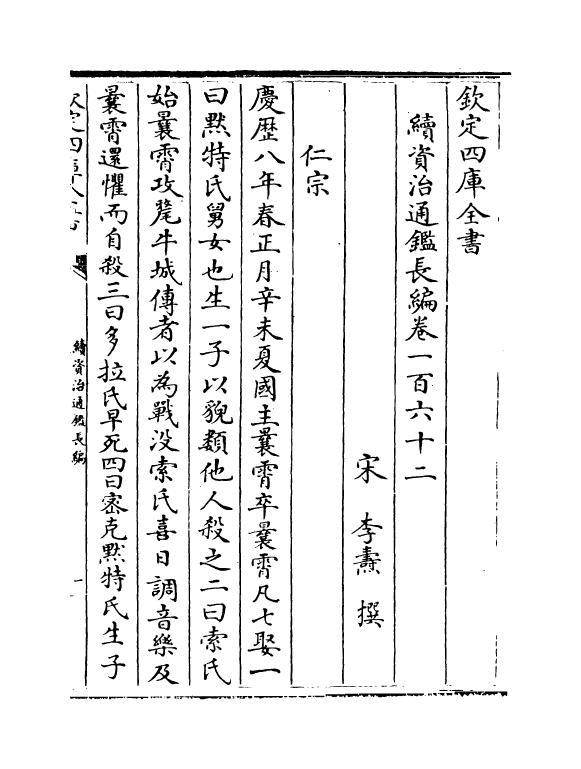 欽定四庫全書
續資治通鑑長編卷一百六十二
宋 李燾 撰
仁宗
慶歴八年春正月辛未夏國主曩霄卒曩霄凡七娶一
曰默特氏舅女也生一子以貌類他人殺之二曰索氏
始曩霄攻氂牛城傳者以為戰没索氏喜日調音樂及
曩霄還懼而自殺三曰多拉氏早死四曰密克黙特氏生子
欽定四庫全書
續資治通鑑長編
一